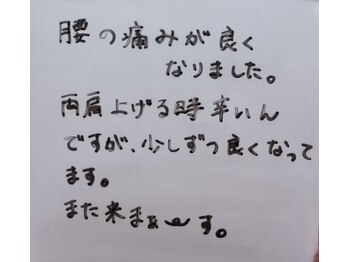 腰の痛みが良く
なりました。
両肩上げる時辛いん
ですが、少しずつ良くなって
ます。
また来ます。